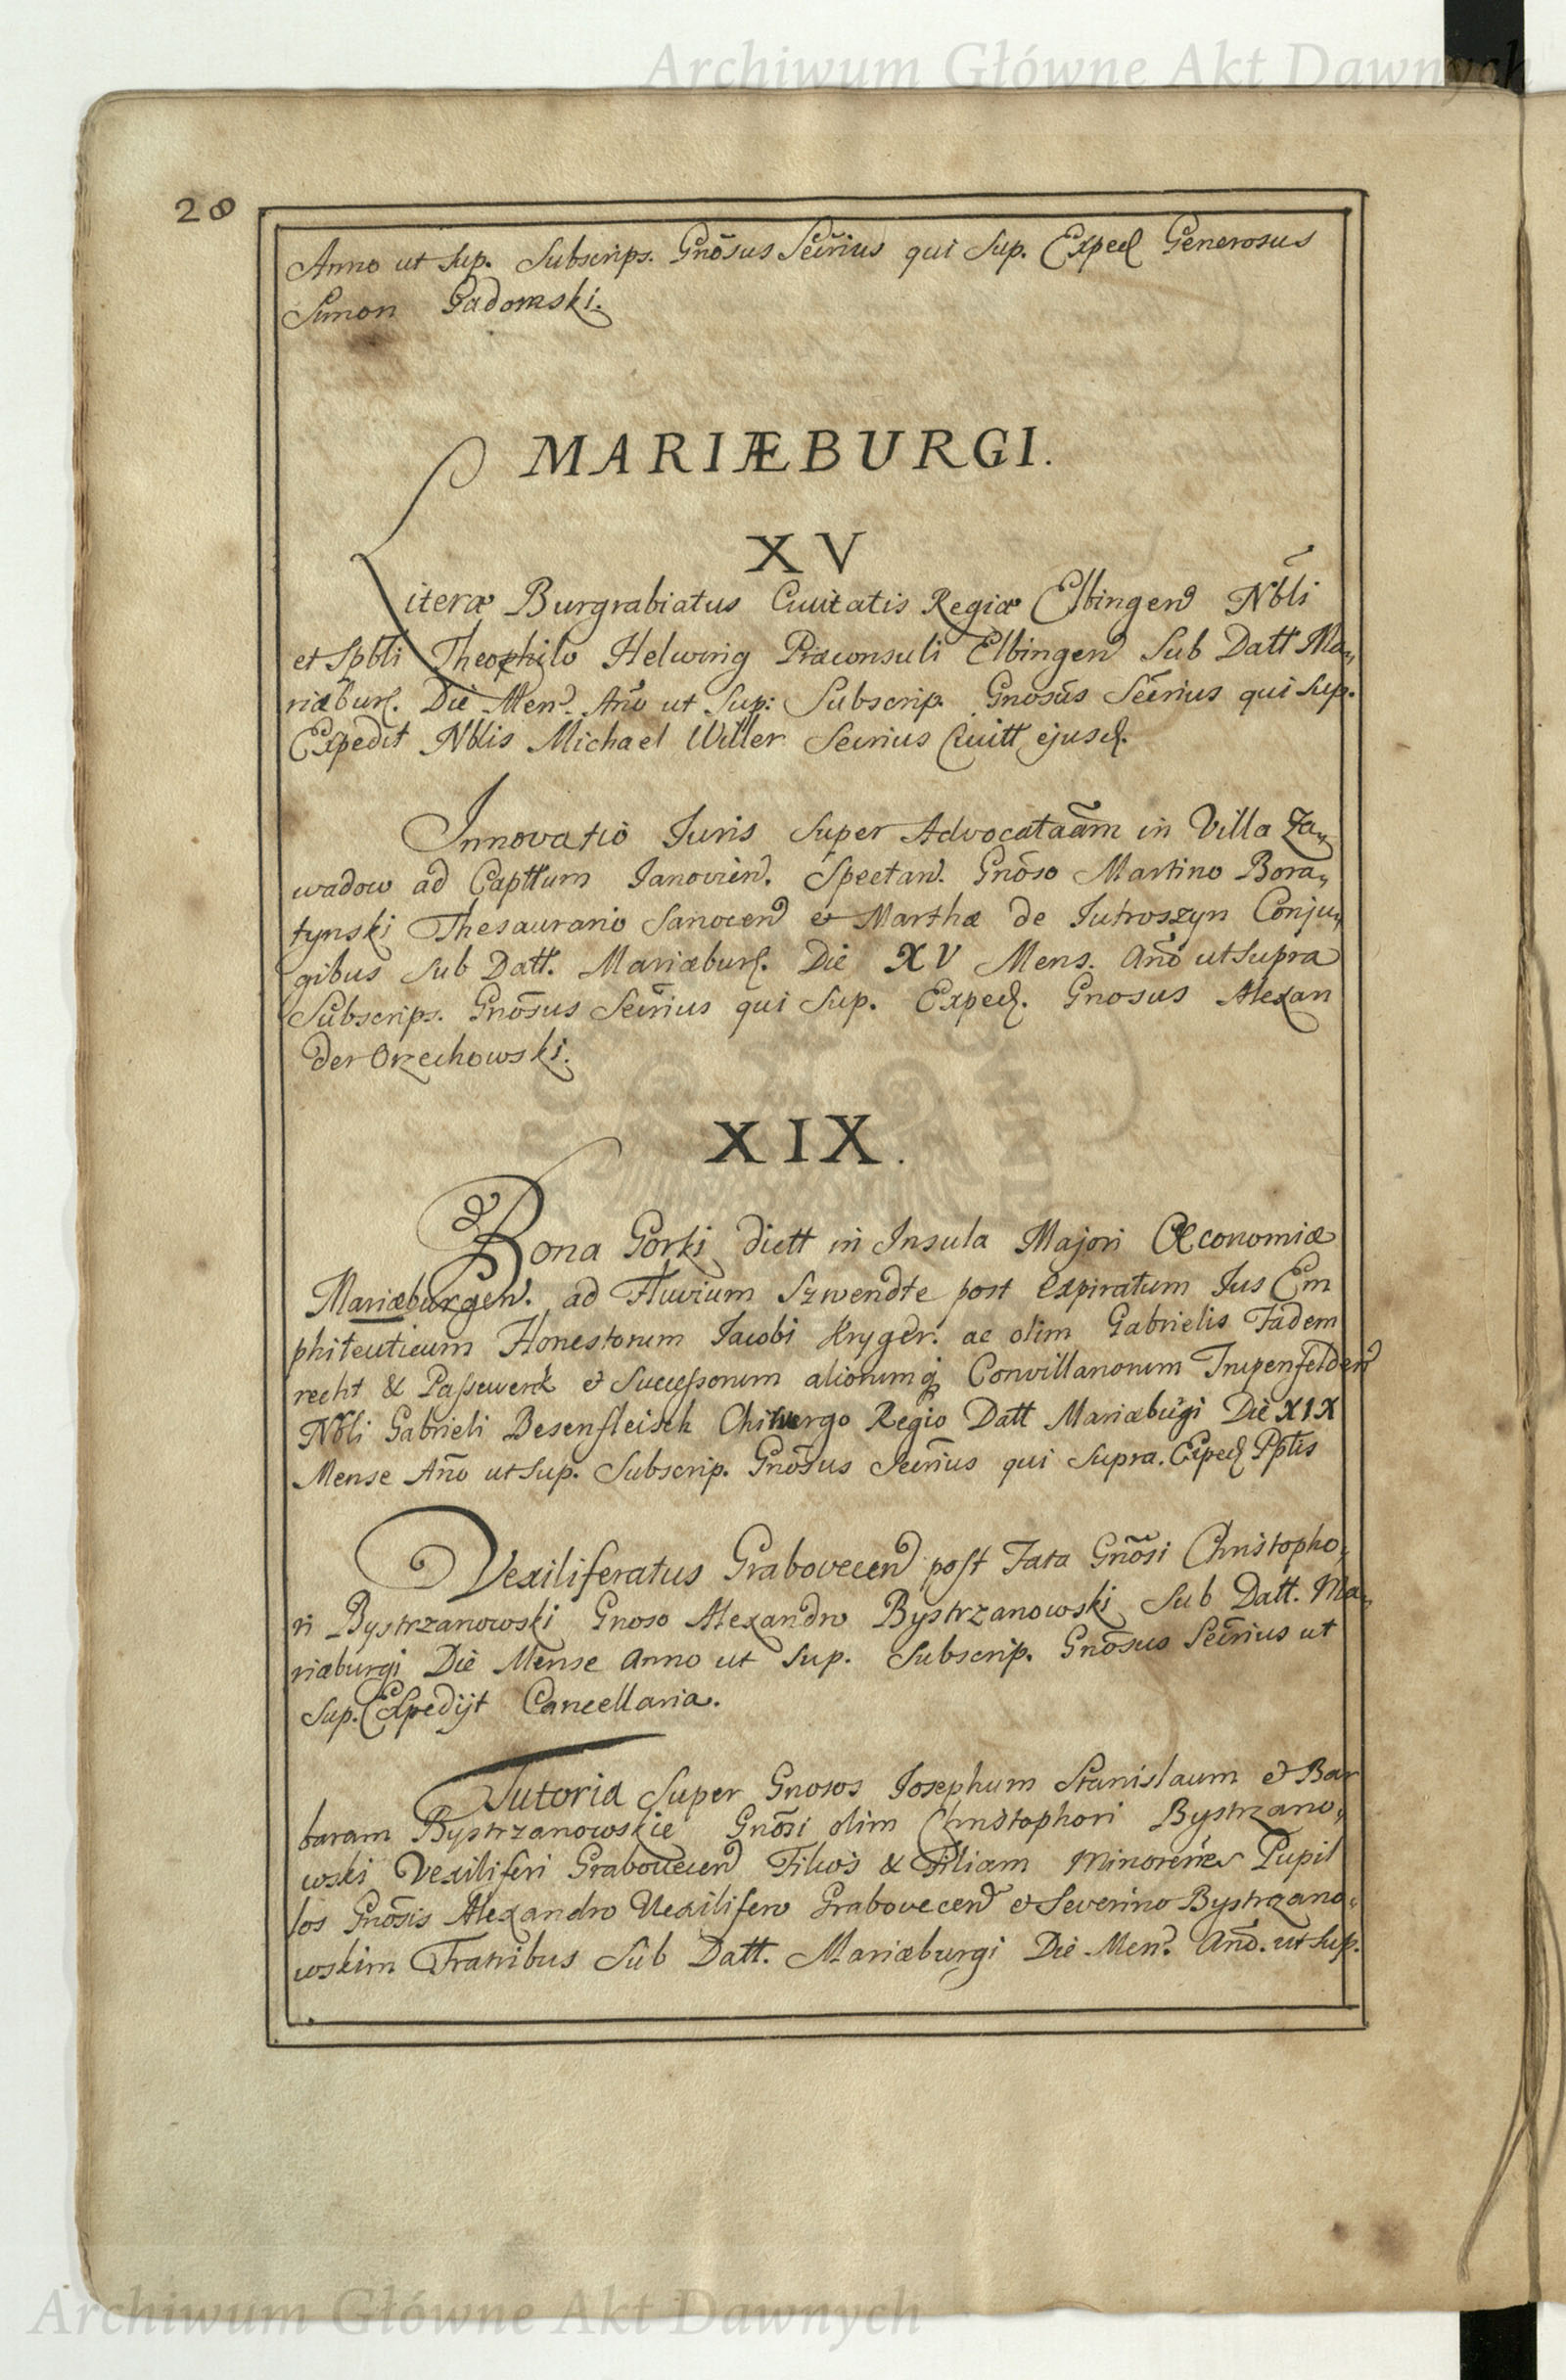 Archiwum Główne Akt Dawnych
28
Anno ut Sup. Subscrips. Gnõsus Secrĩus qui Sup. Exped Generosus
Simon Gadomski.
MARIÆBURGI.
XV
Literæ Burgrabiatus Civitatis Regiæ Elbingen Nbli
et Spbli Theophilo Helwing Præconsuli Elbingen Sub Datt Ma„
riæbur. Die Men. Año ut Sup: Subscrip. Gnosus Secrius qui Sup.
Expedit Nblis Michael Willer Secrius Civitt ejusd.
Innovatio Juris Super Advocataãm in Villa Za„
wadow ad Capttum Janovien. Spectan. Gnõso Martino Bora„
tynski Thesaurario Sanocen et Marthæ de Jutroszyn Conju„
gibus Sub Datt. Mariæbur. Die XV Mens. Año ut Supra
Subscrips. Gnõsus Secrius qui Sup. Exped. Gnosus Alexan
der Orzechowski.
XIX.
Bona Gorki dictt in Insula Majori Œconomiæ
Mariæburgen. ad Fluvium Szwendte post expiratum Jus Em
phiteuticum Honestorum Jacobi Kryger. ac olim Gabrielis Fadem
recht & Passewerk et Successorum aliorumq Convillanorum Trupenfelden
Nbli Gabrieli Besenfleisch Chirurgo Regio Datt Mariæbugi Die XIX
Mense Año ut Sup. Subscrip. Gnõsus Secrius qui Supra. Exped Pptis
Vexiliferatus Grabovecen post Fata Gnõsi Christopho„
ri Bystrzanowski Gnoso Alexandro Bystrzanowski Sub Datt. Ma„
riæburgi Die Mense Anno ut Sup. Subscrip. Gnõsus Secrius ut
Sup. Expedijt Cancellaria.
Tutoria Super Gnosos Josephum Stanislaum et Bar
baram Bystrzanowskie Gnõsi olim Christophori Bystrzano„
wski Vexiliferi Grabovecen Filios & Filiam Minorenes Pupil
los Gnõsis Alexandro Vexilifero Grabovecen et Severino Bystrzano„
wskim Fratribus Sub Datt. Mariæburgi Die Men. Año. ut Sup.
Archiwum Główne Akt Dawnych